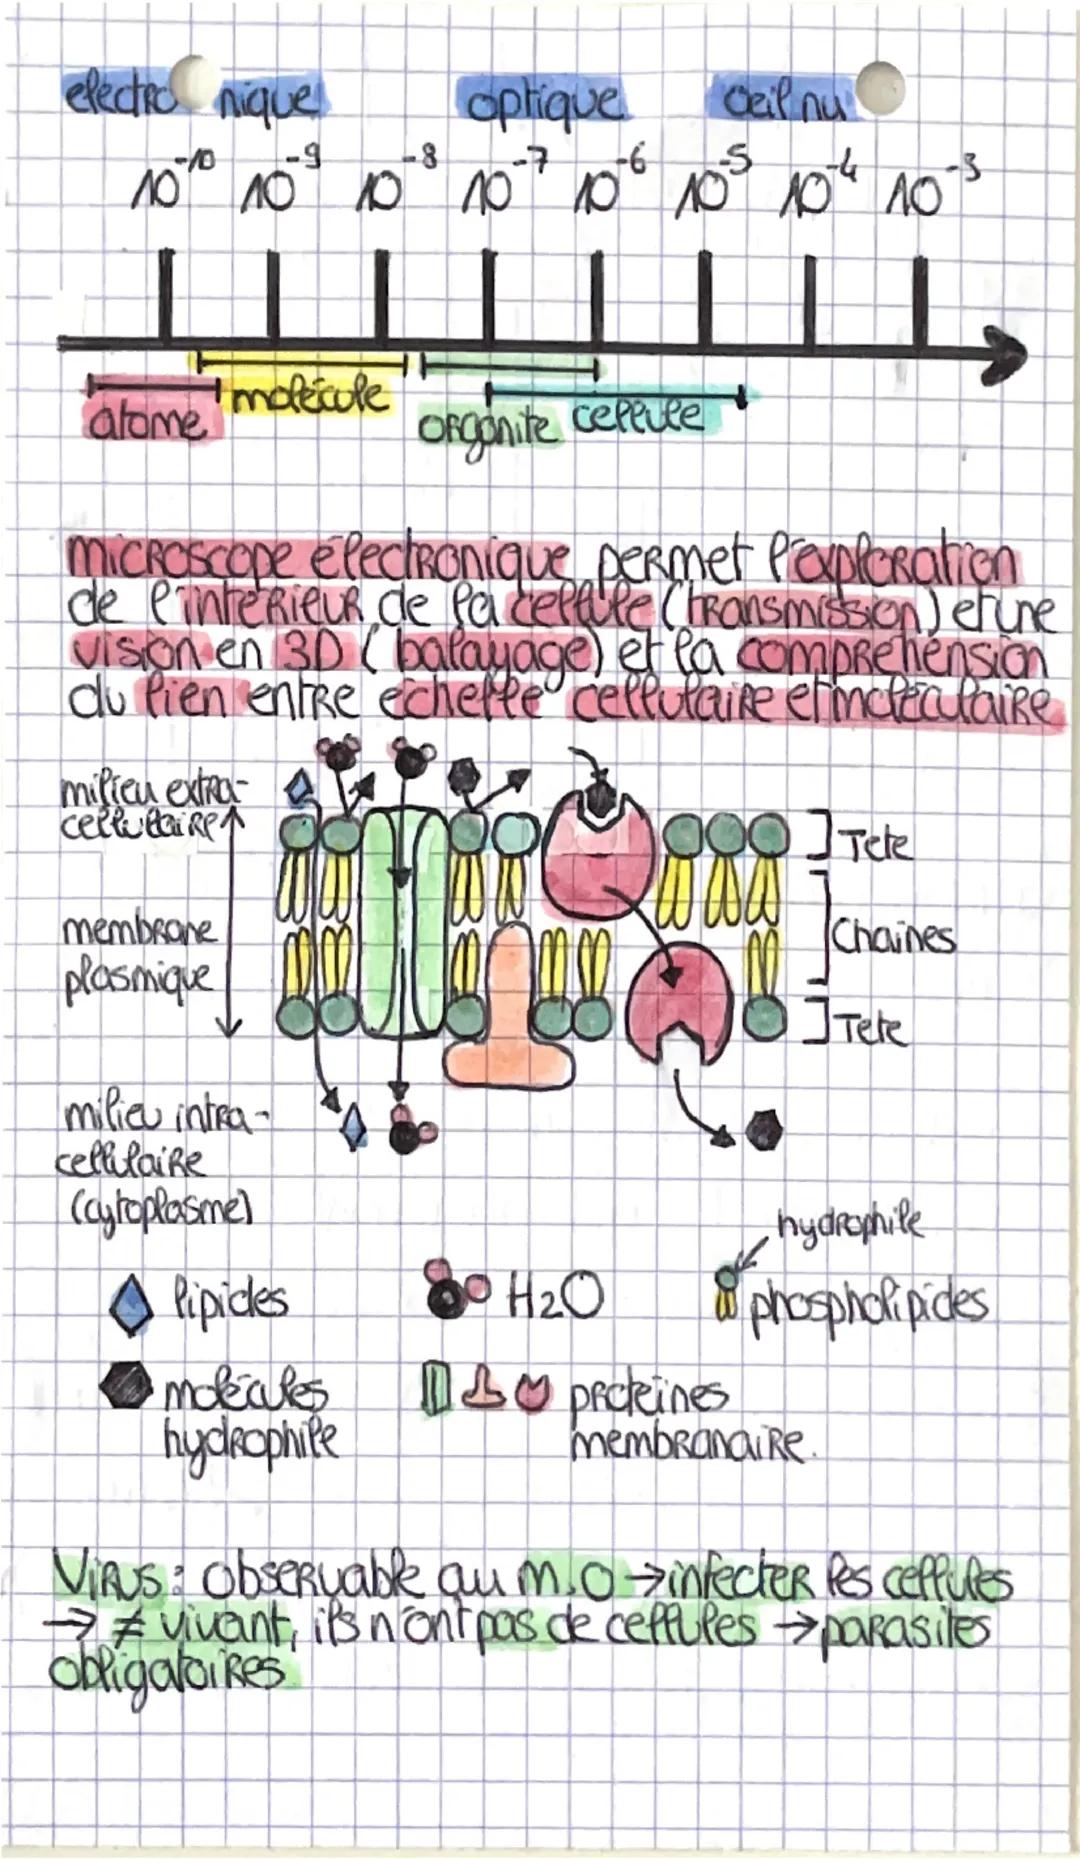 electronique optique oeil nu
10^-10 10^-9 10^-8 10^-7 10^-6 10^-5 10^-4 10^-3
atome molécule organite cellule
microscope électronique permet l'exploration
de l'intérieur de la cellule (transmission) et une
vision en 3D (balayage) et la compréhension
du lien entre échelle cellulaire et moléculaire
milieu extra-
cellulaire
Tete
membrane
plasmique
Chaines
Tete
milieu intra-
cellulaire
(cytoplasme)
hydrophile
lipides H2O phospholipides
molécules
hydrophile
protéines
membranaire.
Virus : observable au m.o → infecter les cellules
→ ≠ vivant, ils n'ont pas de cellules → parasites
obligatoires